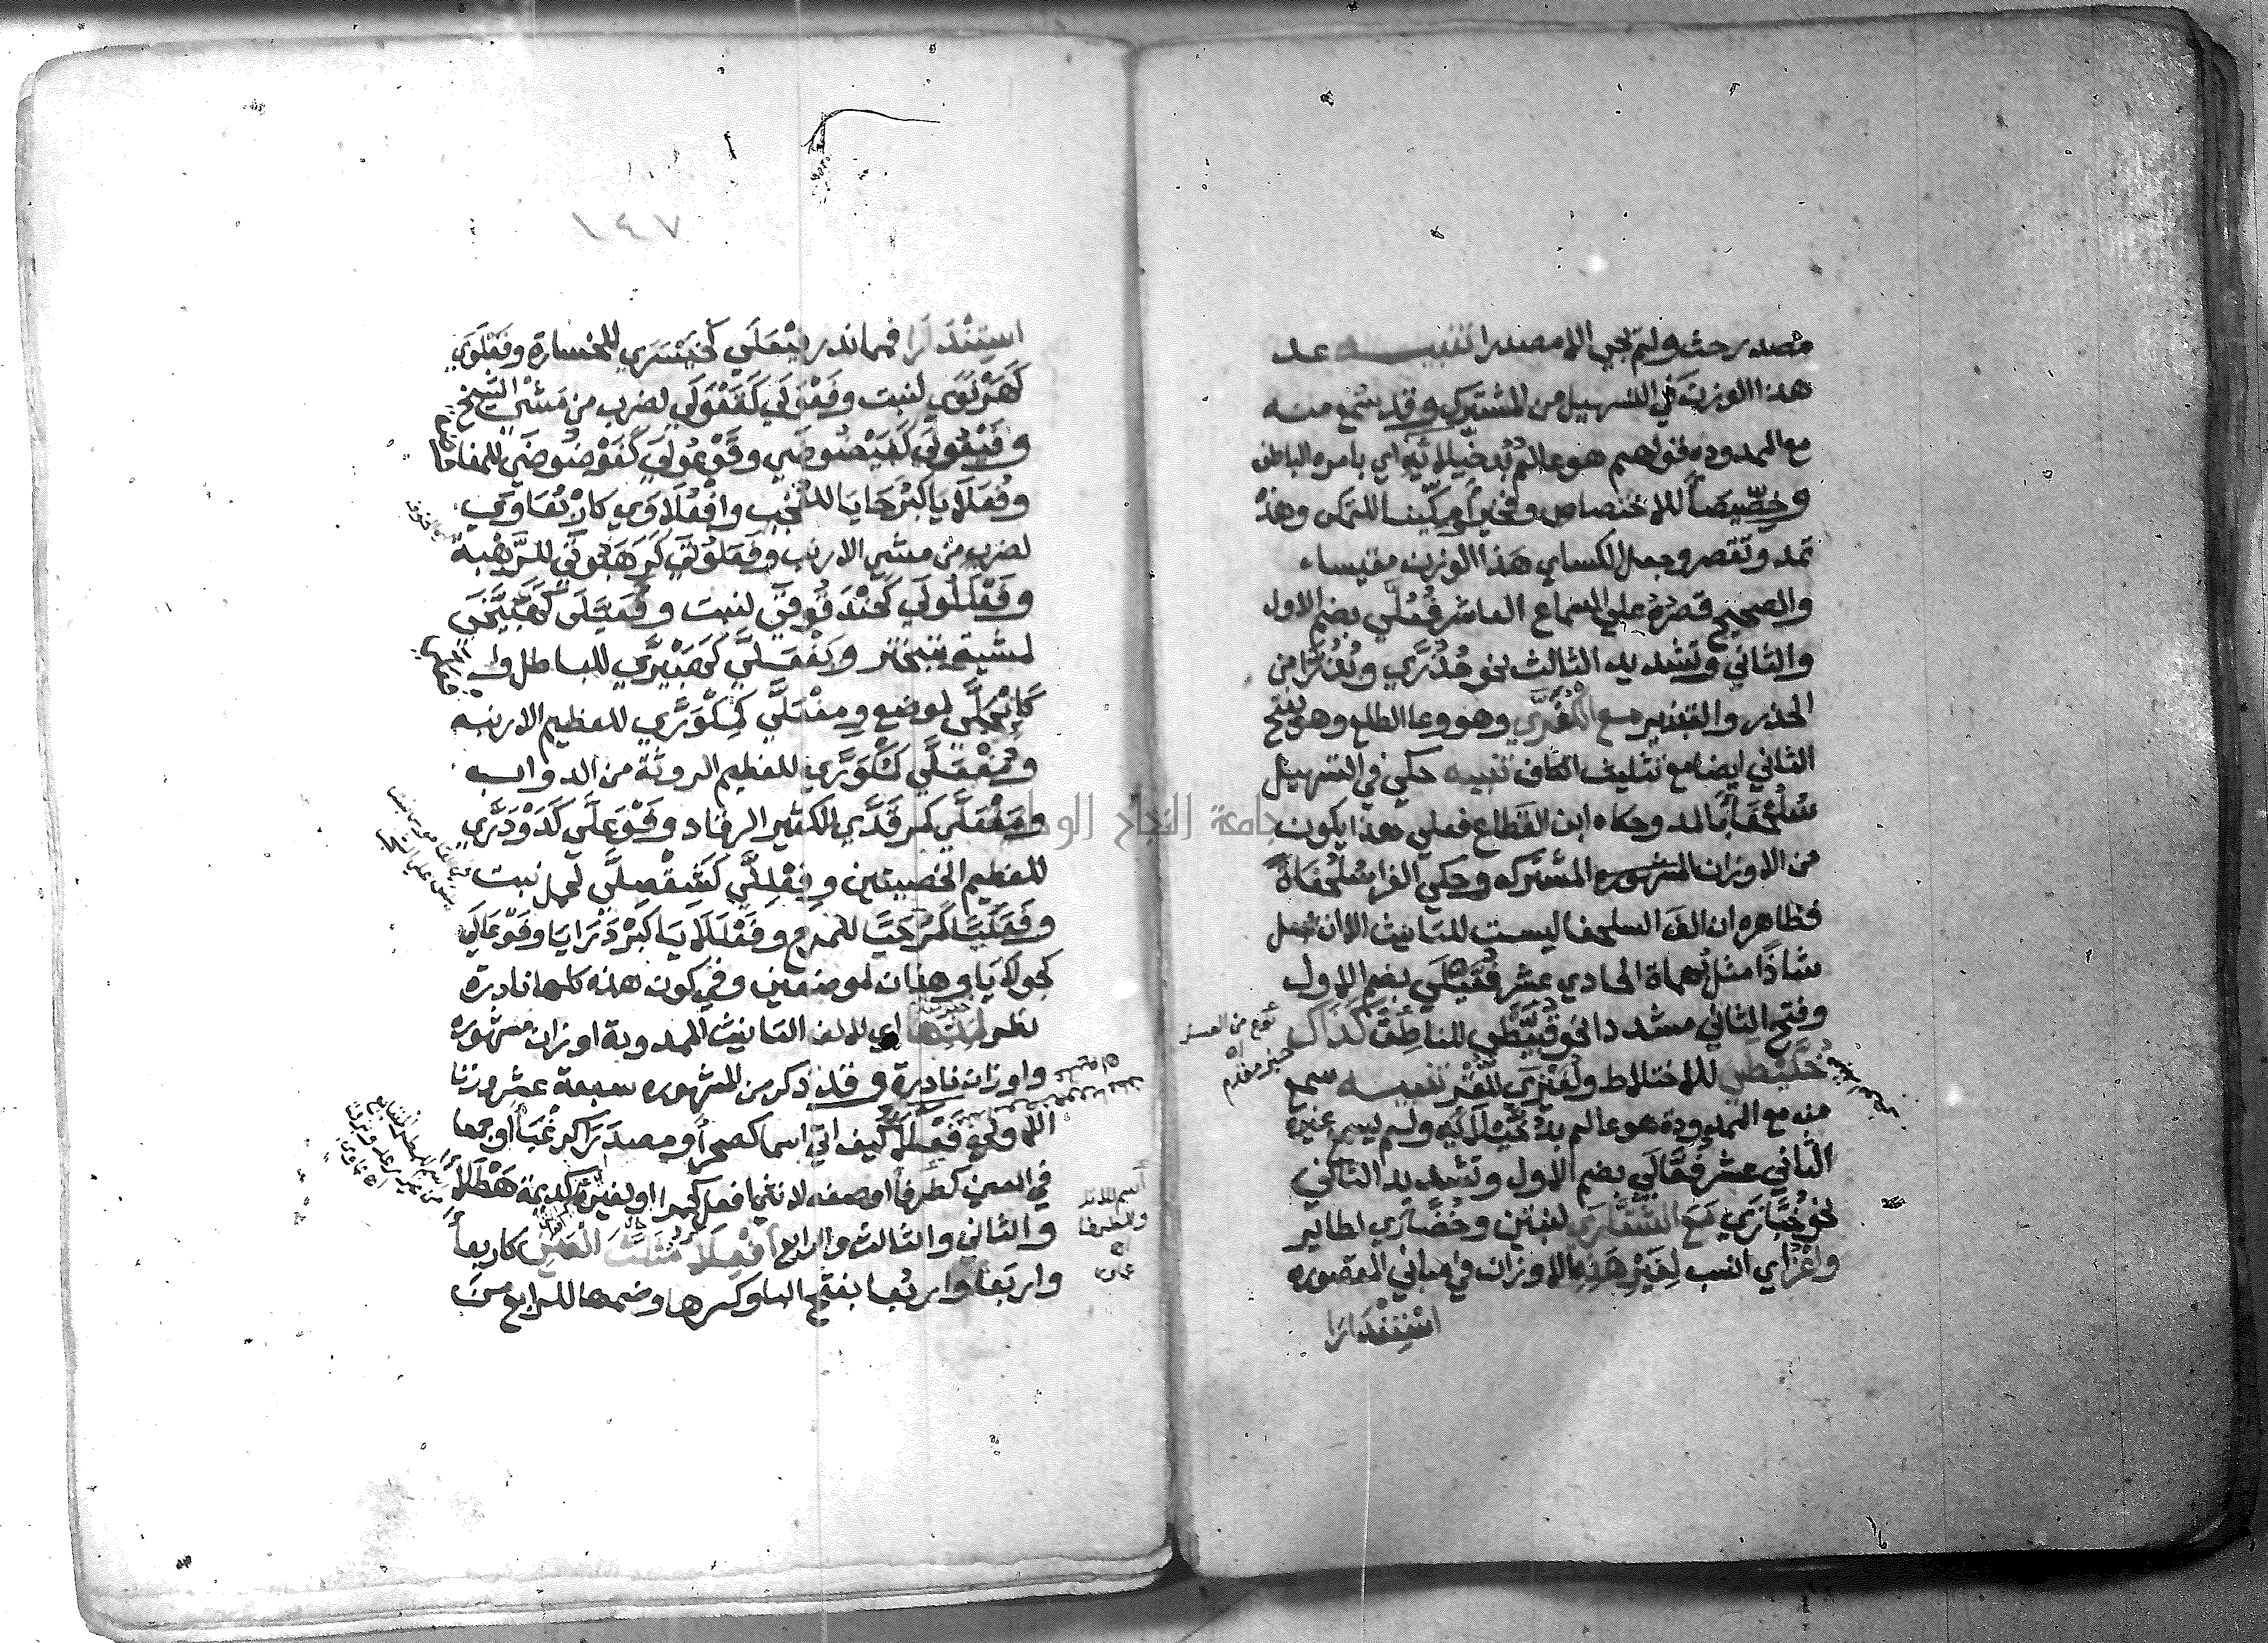 مصدر حث ولم تجي الا مصدرا تنبيه عد
هذا الوزن في التسهيل من المشترك وقد سمع منه
مع الممدوده قولهم هو عالم بدخيلائه اي بامره الباطن
وخصيصا للاختصاص وفخيرا ومكينا للتمكن وهذه
تمد وتقصر وجعل الكساي هذا الوزن مقيسا
والصحيح قصره علي السماع العاشر فعلي بضم الاول
والثاني وتشديد الثالث نحو حذري وبذرا من
الحذر والتبذير مع الكفري وهو وعا الطلع وهو بفتح
الثاني ايضا مع تثليث الكاف تنبيه حكي في التسهيل
سلحفا بالمد وحكاه ابن القطاع فعلي هذا يكون
من الاوزان المشهوره المشتركه وحكي الفرا سلحفاة
فظاهره ان الف السلحفا ليست للتانيث الا ان تجعل
شاذا مثل بهماة الحادي عشر فعيلي بضم الاول
وفتح الثاني مشددا نحو قبيطي للناطف كذاك
خليطي للاختلاط ولغيزي للغز تنبيه سمع
منه مع الممدودة هو عالم بدخيلائه ولم يسمع غيره
الثاني عشر فعالي بضم الاول وتشديد الثاني
نحو خبازي مع الشقاري لنبتين وخضاري لطاير
واعز اي انسب لغير هذه الاوزان في مباني المقصوره
استندارا
نوع من العسل
خبر مقدم
١٤٧
استندارا فمما ندر فيعلي كخيسري للخسارة وفعلوي
كهرنوي لنبت وفعولي كقعولي لضرب من مشي الشيخ
وفيعولي كفيضوضي وفوعولي كفوضوضي للمفاوضا
وفعلايا كبرحايا للعجب وافعلاوي كاربعاوي
لضرب من مشي الارنب وفعلوتي كرهبوتي للرهبة
وفعللولي كحندقوقي لنبت وفعيلي كهبيخي
لمشية بتبختر ويفعلي كيهيري للباطل وا
كايجلي لموضع ومفعلي كمكوري للعظيم الارنبه
ومفعلي كمكوري للعظيم الروثة من الدواب
ومفعلي كمرقدي للكثير الرقاد وفوعلي كدودري
للعظيم الخصيتين وفعللي كشفصلي لحمل نبت
وفعليا كمرحيا للمرح وفعللايا كبردرايا وفوعالي
كحولايا وهذان لموضعين وفي كون هذه كلها نادرة
نظر لمدها اي لالف التانيث الممدودة اوزان مشهوره
واوزان نادرة وقد ذكر من المشهوره سبعة عشر وزنا
الاول نحو فعلا كيف اتي اسما كصحرا او مصدرا كرغبا او جمعا
في المعني كطرفا او صفه لانثي افعل كحمرا او لغيره كديمة هطلا
والثاني والثالث والرابع افعلا مثلث العين كاربعا
واربعا واربعا بفتح البا وكسرها وضمها للرابع من
اسم للاثل